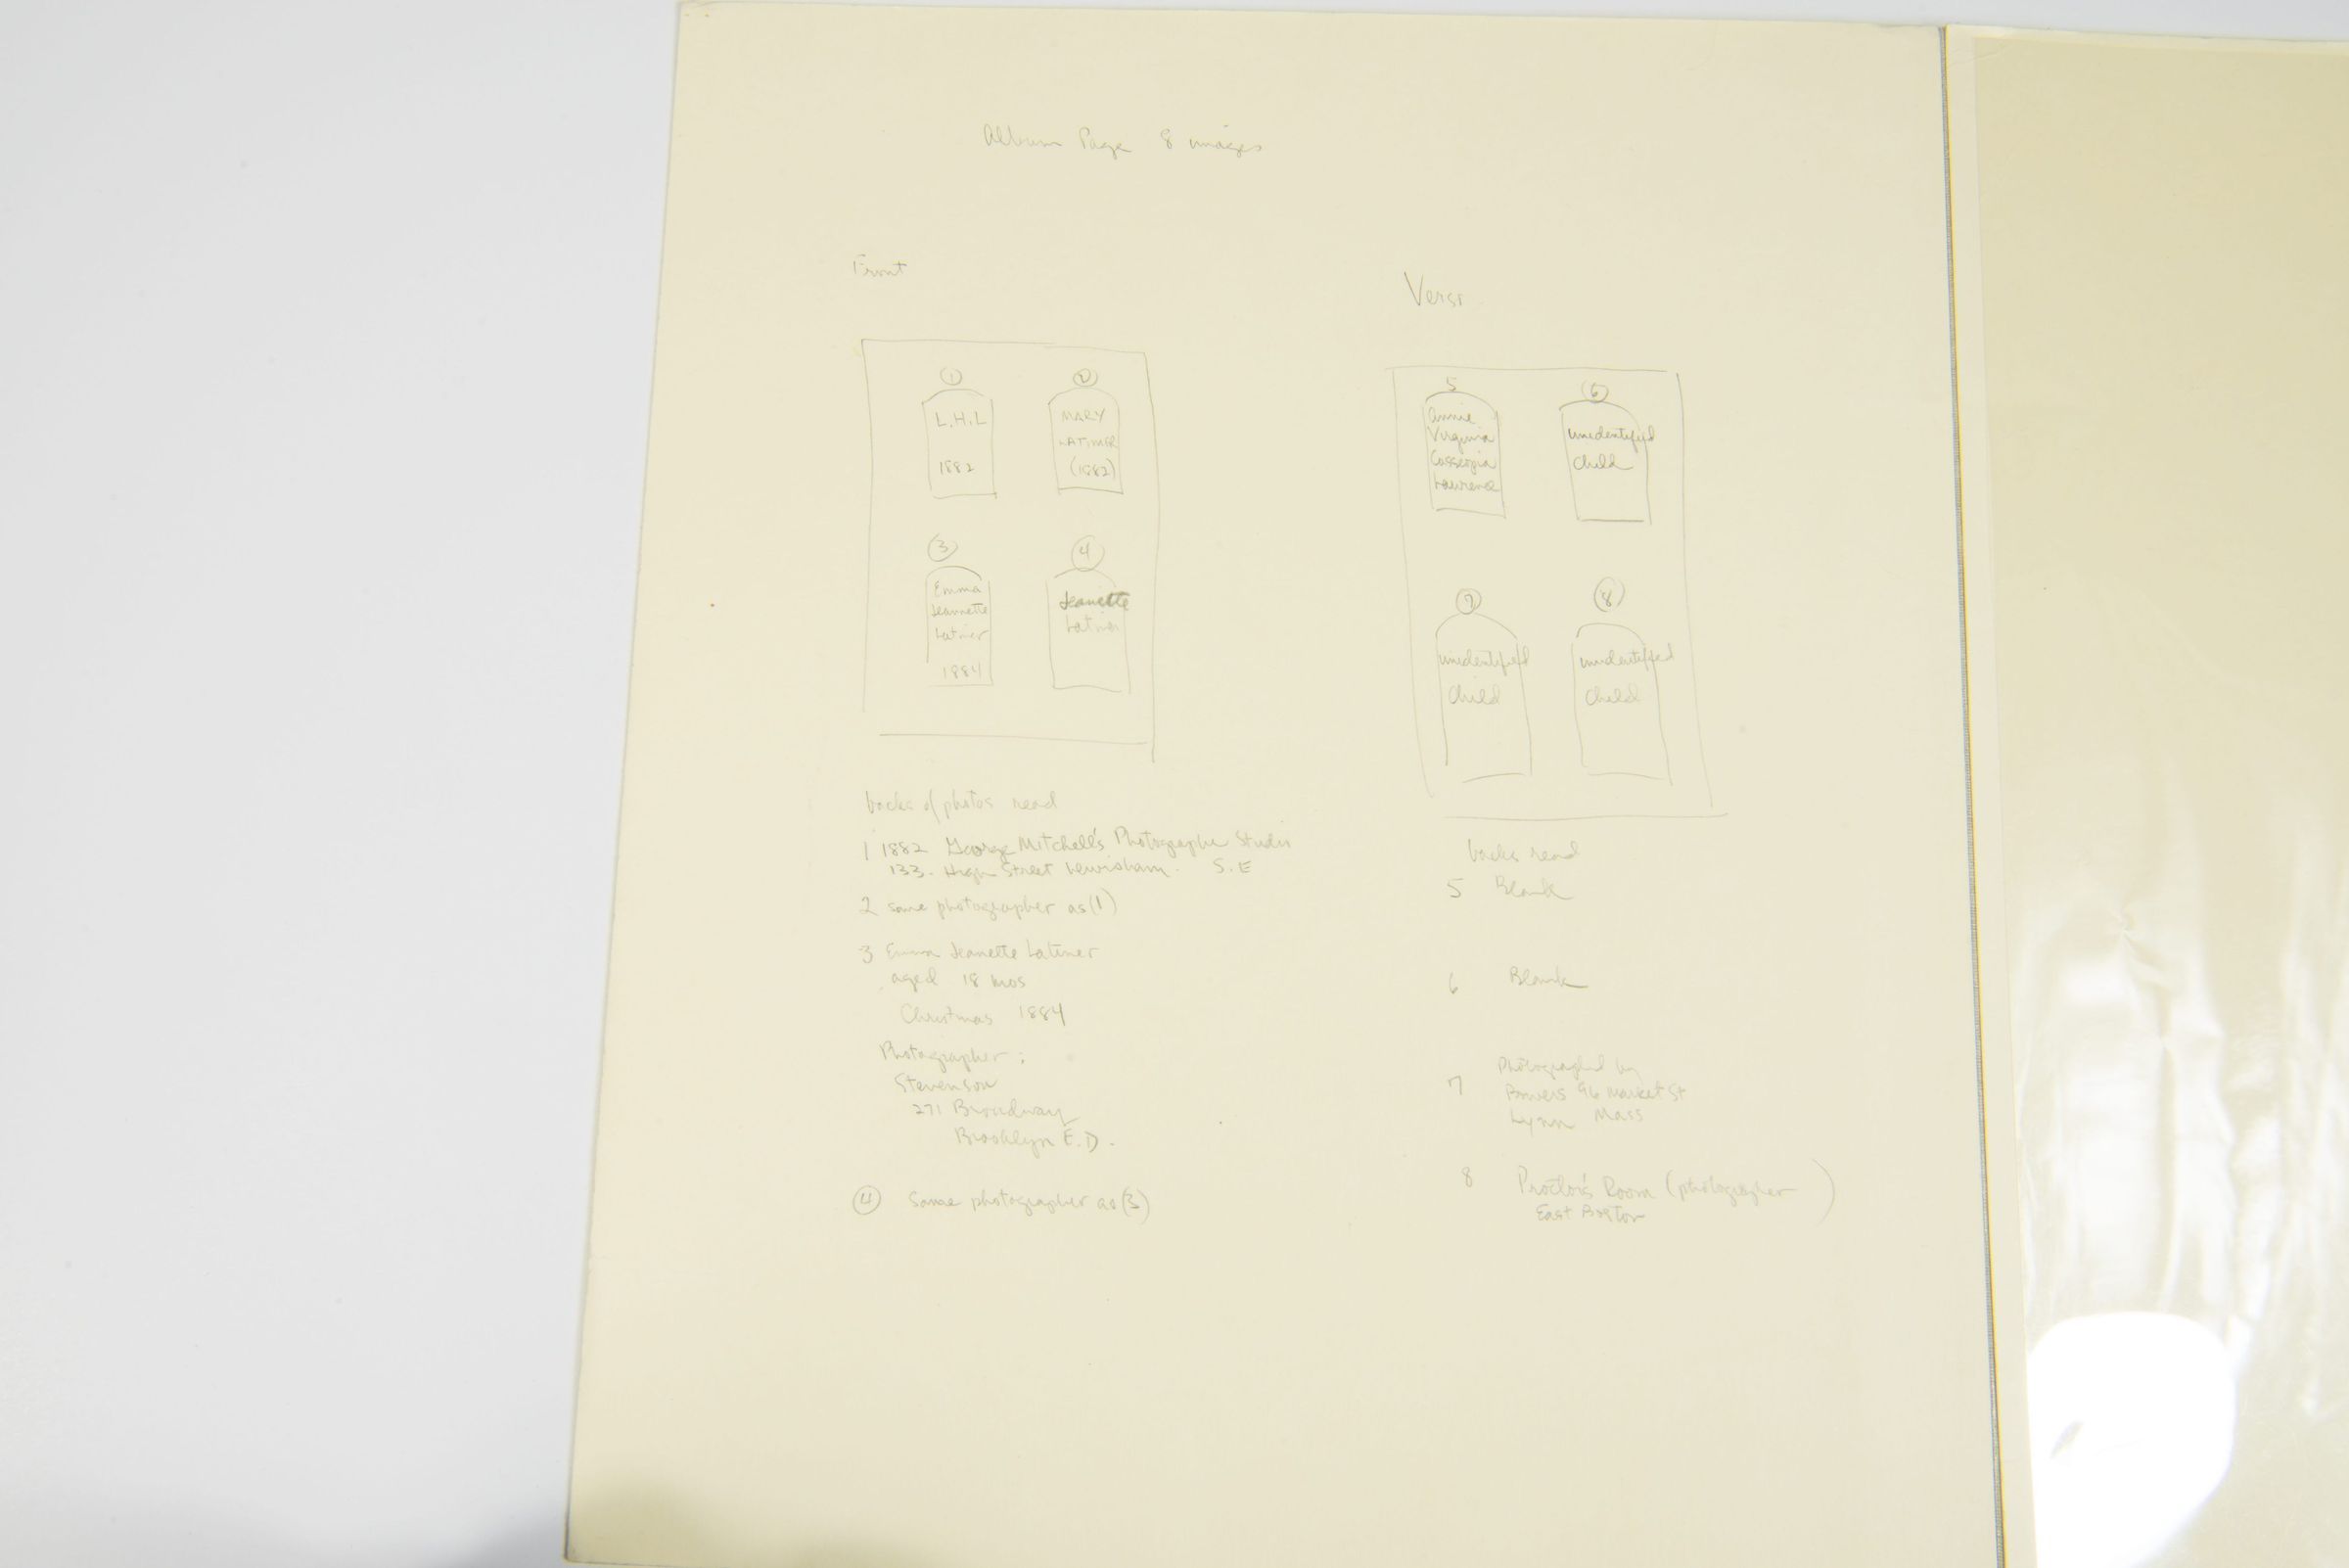 Album Page 8 images
Front
1
L.H.L
1882
2
MARY
LATIMER
(1882)
3
Emma
Jeannette
Latimer
1884
4
Jeanette
Latimer
backs of photos read
1 1882 George Mitchell's Photographic Studio
133. High Street Lewisham. S.E
2 same photographer as (1)
3 Emma Jeanette Latimer
aged 18 mos
Christmas 1884
Photographer :
Stevenson
271 Broadway
Brooklyn E.D.
4 Same photographer as (3)
Verso
5
Annie
Virginia
Lawrence
6
unidentified
child
7
unidentified
child
8
unidentified
child
backs read
5 Blank
6 Blank
7 Photographed by
Bowers 96 Market St
Lynn Mass
8 Proctor's Room (photographer)
East Boston